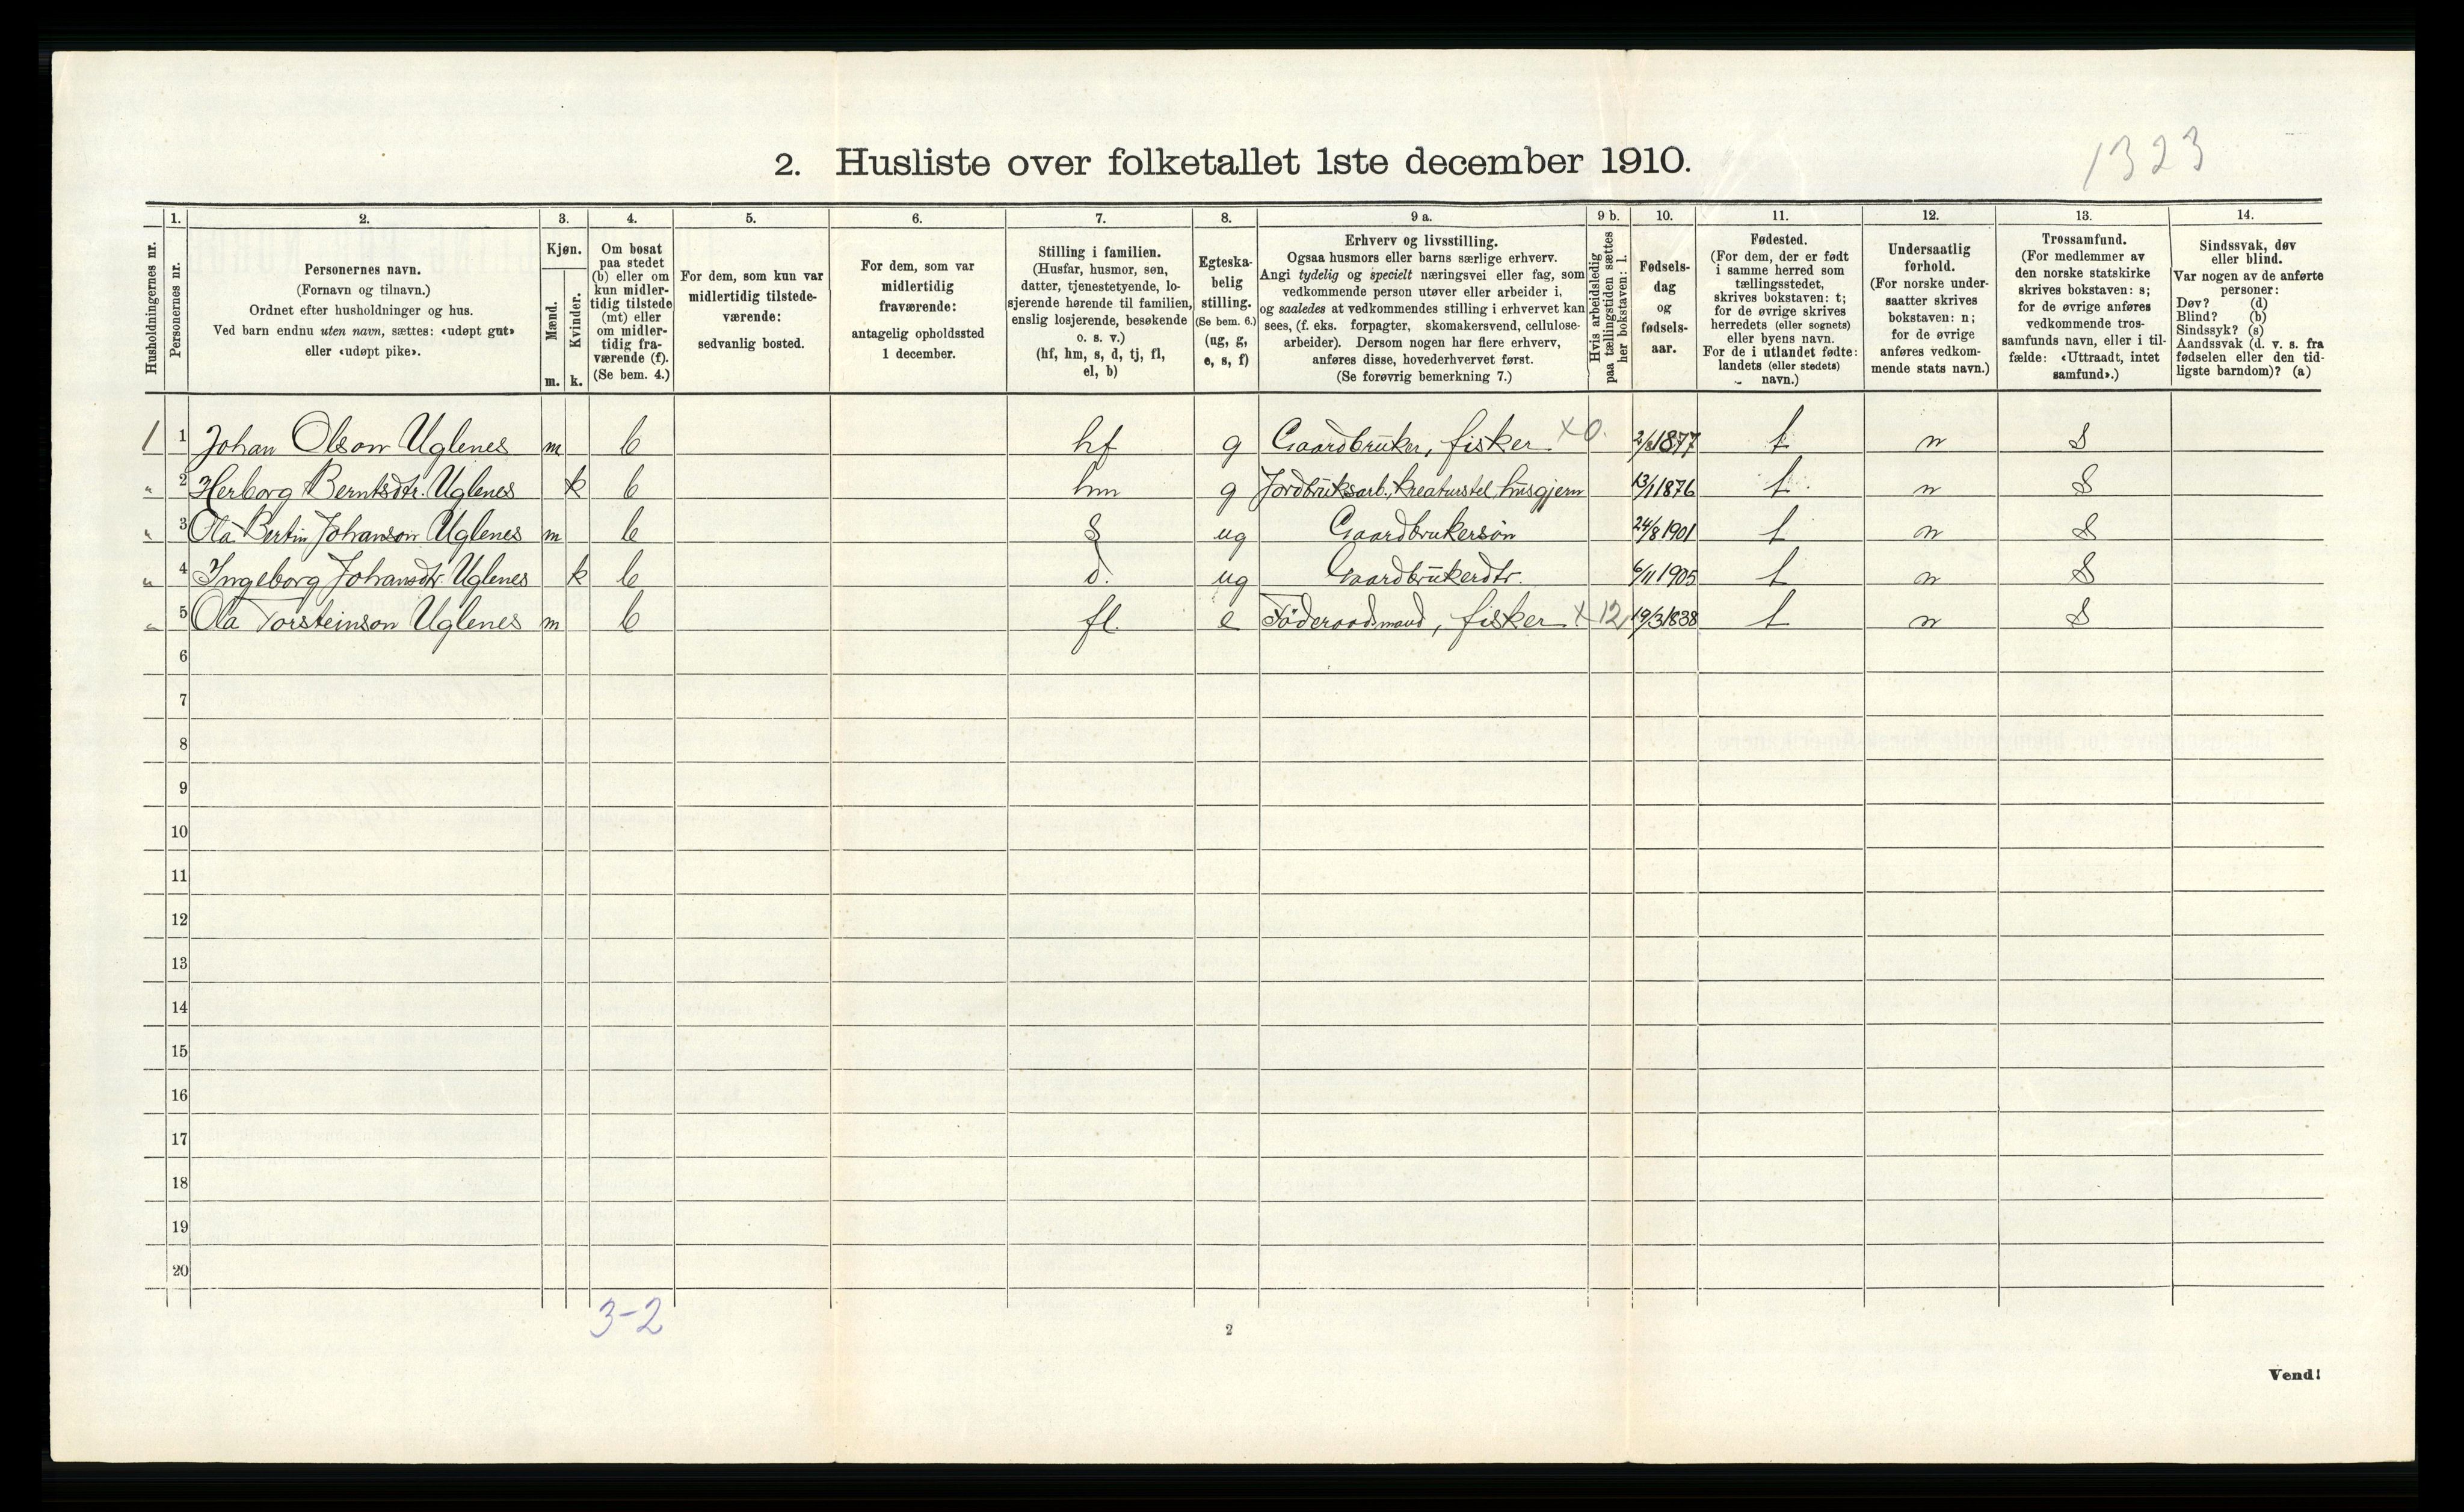 1323
2. Husliste over folketallet 1ste december 1910.
1. 2. 3. 4. 5. 6. 7. 8. 9 a. 9 b. 10. 11. 12. 13. 14.
Husholdningernes nr.
Personernes nr.
Personernes navn.
(Fornavn og tilnavn.)
Ordnet efter husholdninger og hus.
Ved barn endnu uten navn, sættes: «udøpt gut»
eller «udøpt pike».
Kjøn.
Mænd.
Kvinder.
m. k.
Om bosat
paa stedet
(b) eller om
kun midler-
tidig tilstede
(mt) eller
om midler-
tidig fra-
værende (f).
(Se bem. 4.)
For dem, som kun var
midlertidig tilstede-
værende:
sedvanlig bosted.
For dem, som var
midlertidig
fraværende:
antagelig opholdssted
1 december.
Stilling i familien.
(Husfar, husmor, søn,
datter, tjenestetyende, lo-
sjerende hørende til familien,
enslig losjerende, besøkende
o. s. v.)
(hf, hm, s, d, tj, fl,
el, b)
Egteska-
belig
stilling.
(Se bem. 6.)
(ug, g,
e, s, f)
Erhverv og livsstilling.
Ogsaa husmors eller barns særlige erhverv.
Angi tydelig og specielt næringsvei eller fag, som
vedkommende person utøver eller arbeider i,
og saaledes at vedkommendes stilling i erhvervet kan
sees, (f. eks. forpagter, skomakersvend, cellulose-
arbeider). Dersom nogen har flere erhverv,
anføres disse, hovederhvervet først.
(Se forøvrig bemerkning 7.)
Hvis arbeidsledig
paa tællingstiden sættes
her bokstaven: l.
Fødsels-
dag
og
fødsels-
aar.
Fødested.
(For dem, der er født
i samme herred som
tællingsstedet,
skrives bokstaven: t;
for de øvrige skrives
herredets (eller sognets)
eller byens navn.
For de i utlandet fødte:
landets (eller stedets)
navn.)
Undersaatlig
forhold.
(For norske under-
saatter skrives
bokstaven: n;
for de øvrige
anføres vedkom-
mende stats navn.)
Trossamfund.
(For medlemmer av
den norske statskirke
skrives bokstaven: s;
for de øvrige anføres
vedkommende tros-
samfunds navn, eller i til-
fælde: «Uttraadt, intet
samfund».)
Sindssvak, døv
eller blind.
Var nogen av de anførte
personer:
Døv? (d)
Blind? (b)
Sindssyk? (s)
Aandssvak (d. v. s. fra
fødselen eller den tid-
ligste barndom)? (a)
1 1 Johan Olson Uglenes m b hf g Gaardbruker, fisker X 0. 1877 t n s
" 2 Herborg Berntsdtr. Uglenes k b hm g Jordbruksarb., kreaturstel, husgjern 13/1 1876 t n s
" 3 Ola Bertin Johanson Uglenes m b s ug Gaardbrukersøn 24/8 1901 t n s
" 4 Ingeborg Johansdtr. Uglenes k b d. ug Gaardbrukerdtr. 6/11 1905 t n s
" 5 Ola Torsteinson Uglenes m b fl. e Föderaadsmand, fisker X 12, 19/3 1838 t n s
6
7
8
9
10
11
12
13
14
15
16
17
18
19
20
3-2
2
Vend!